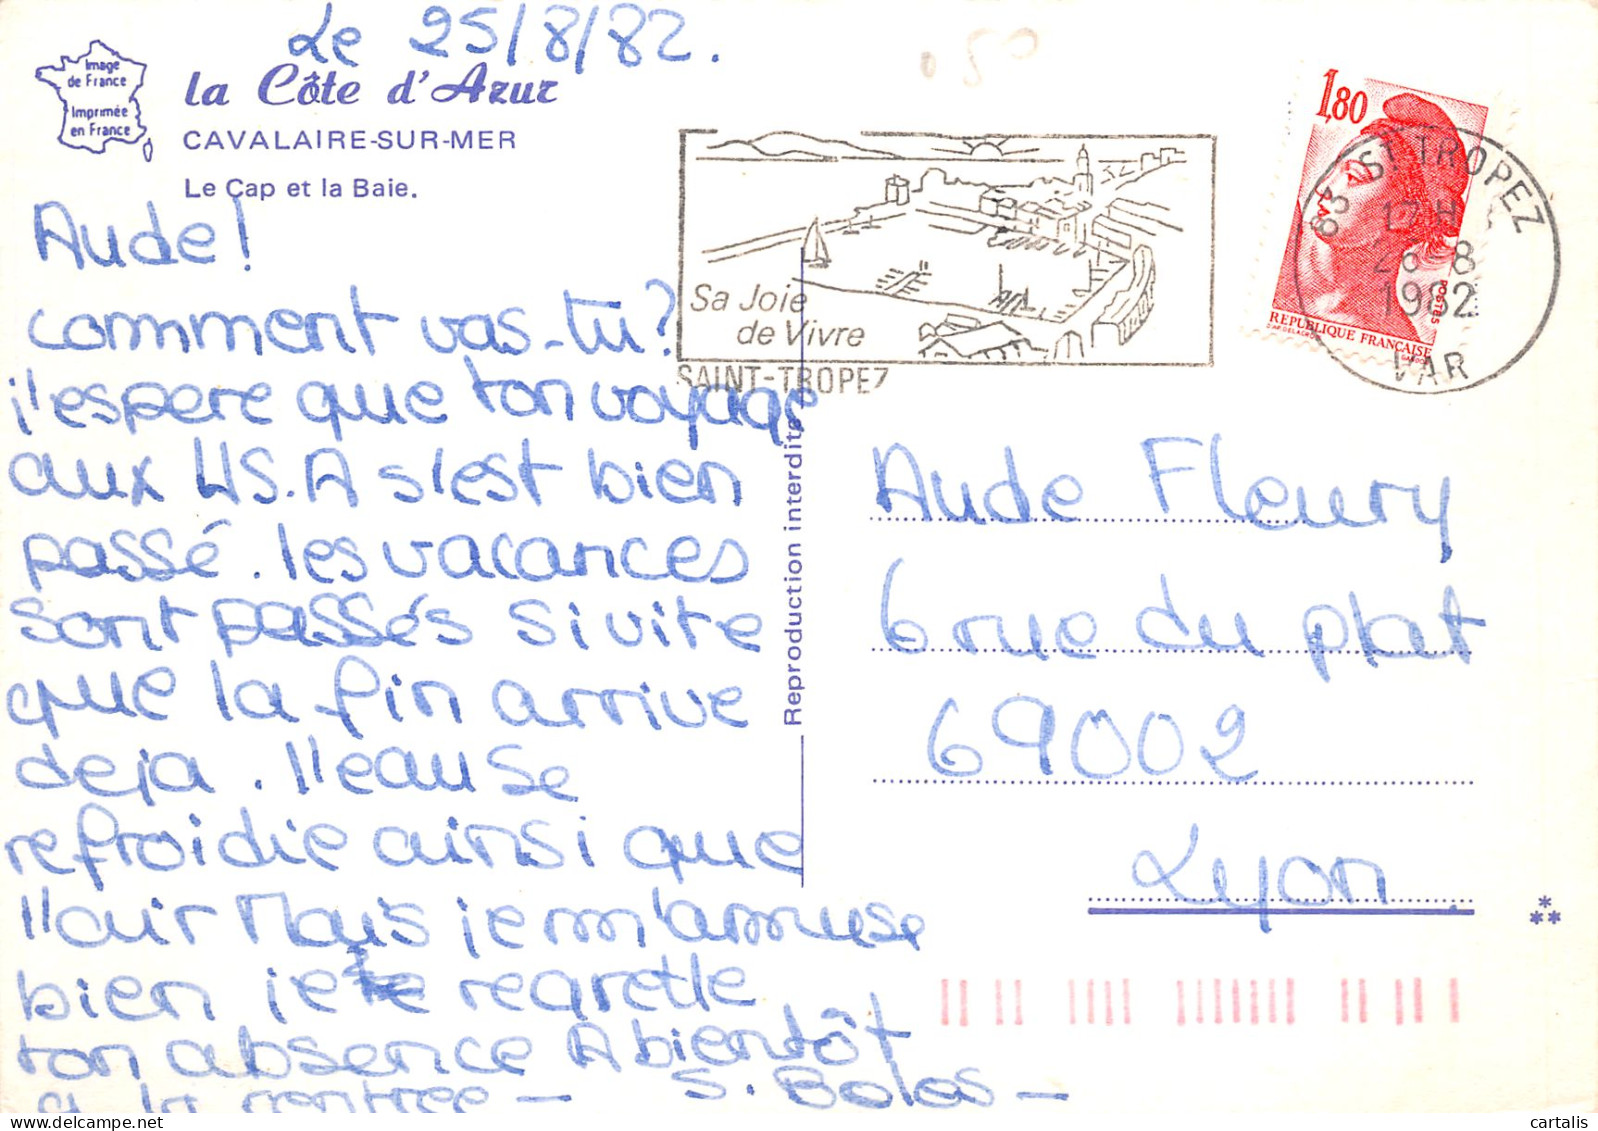 Le 25/8/82.
Image
de France
Imprimée
en France
la Côte d'Azur
CAVALAIRE-SUR-MER
Le Cap et la Baie.
Aude!
comment vas-tu?
j'espere que ton voyage
aux U.S.A s'est bien
passé. les vacances
sont passés si vite
que la fin arrive
deja. l'eau se
refroidie ainsi que
l'air Mais je m'amuse
bien je regrette
ton absence A bientôt
a la rentrée - S. Bolos -
Reproduction interdite
Sa Joie
de Vivre
SAINT-TROPEZ
1,80
POSTES
REPUBLIQUE FRANÇAISE
83 ST TROPEZ
17H
26-8
1982
VAR
Aude Fleury
6 rue du plat
69002
Lyon.
cartalis